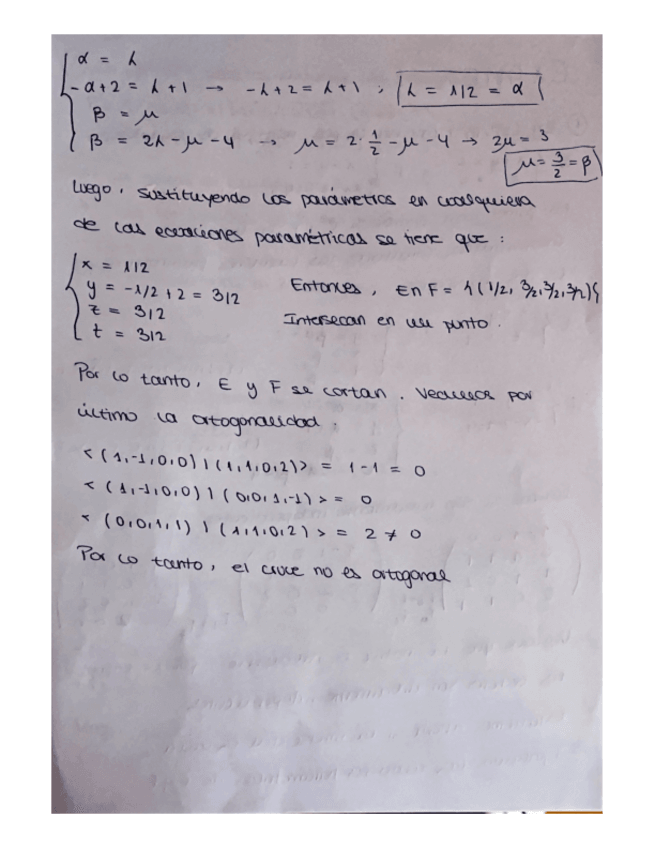 α = λ
-α+2 = λ+1 → -λ+2 = λ+1 ; λ = 1/2 = α
β = μ
β = 2λ-μ-4 → μ = 2·1/2 -μ-4 → 2μ = 3
μ = 3/2 = β
Luego, sustituyendo los parámetros en cualquiera
de las ecuaciones paramétricas se tiene que:
x = 1/2
y = -1/2+2 = 3/2 Entonces, E∩F = {(1/2, 3/2, 3/2, 3/2)}
z = 3/2 Intersecan en un punto.
t = 3/2
Por lo tanto, E y F se cortan. Veamos por
último la ortogonalidad.
<(1,-1,0,0) | (1,1,0,2)> = 1-1 = 0
<(1,-1,0,0) | (0,0,1,-1)> = 0
<(0,0,1,1) | (1,1,0,2)> = 2 ≠ 0
Por lo tanto, el cruce no es ortogonal